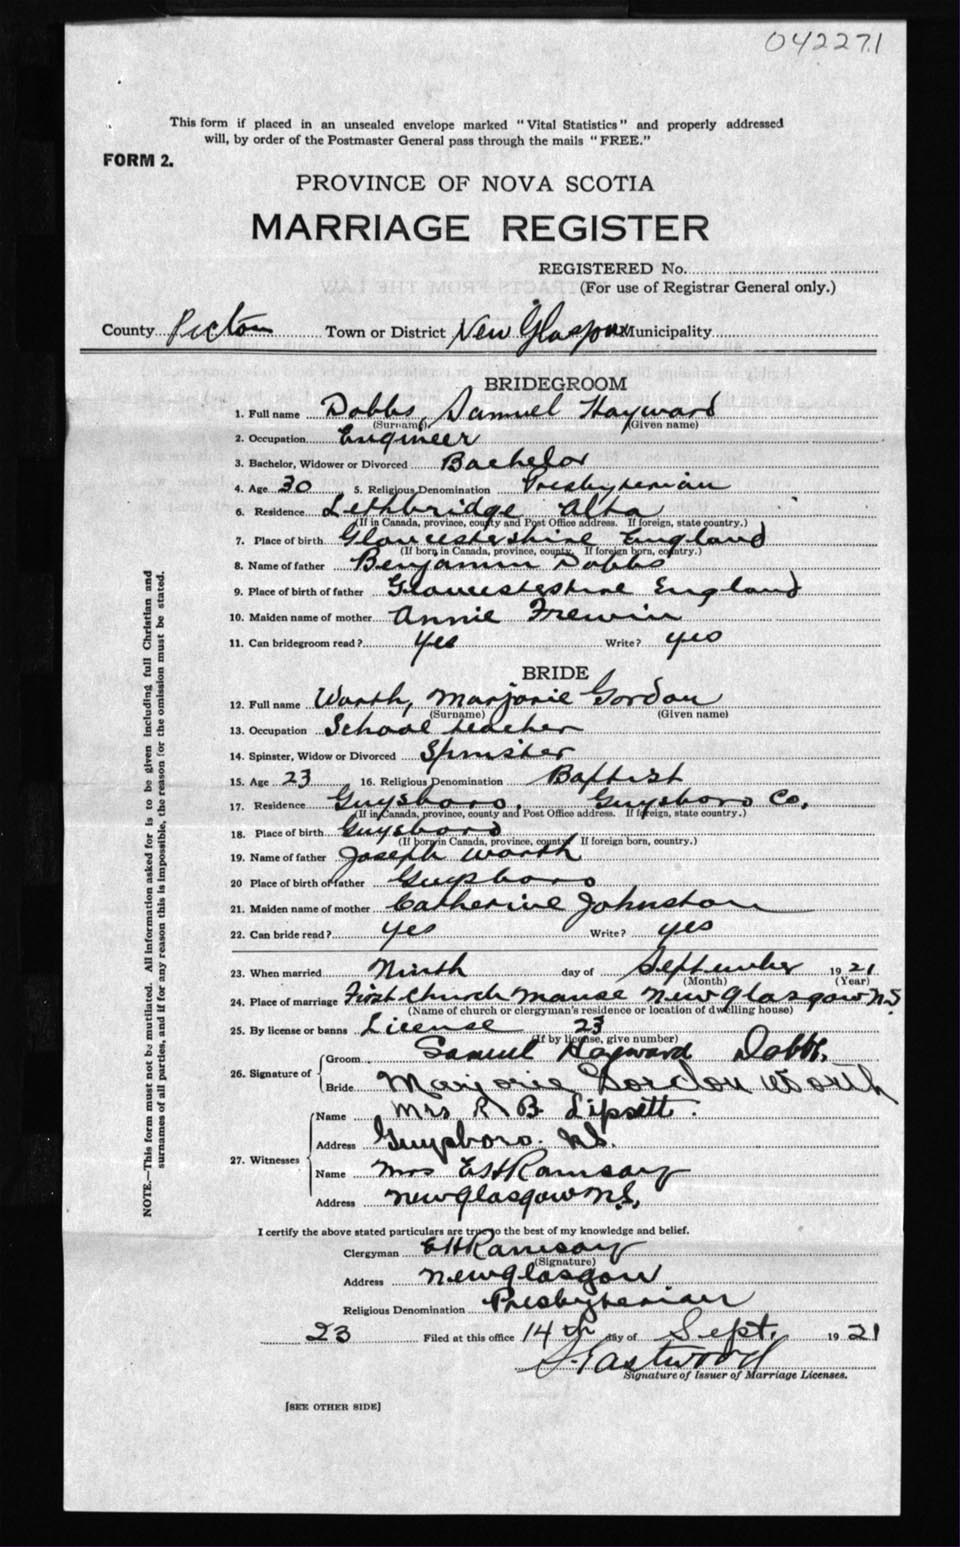 042271
This form if placed in an unsealed envelope marked "Vital Statistics" and properly addressed
will, by order of the Postmaster General pass through the mails "FREE."
FORM 2.
PROVINCE OF NOVA SCOTIA
MARRIAGE REGISTER
REGISTERED No.
(For use of Registrar General only.)
County Pictou Town or District New Glasgow Municipality
BRIDEGROOM
1. Full name Dobbs, Samuel Hayward
(Surname) (Given name)
2. Occupation Engineer
3. Bachelor, Widower or Divorced Bachelor
4. Age 30 5. Religious Denomination Presbyterian
6. Residence Lethbridge Alta
(If in Canada, province, county and Post Office address. If foreign, state country.)
7. Place of birth Gloucestershire England
(If born in Canada, province, county. If foreign born, country.)
8. Name of father Benjamin Dobbs
9. Place of birth of father Gloucestershire England
10. Maiden name of mother Annie Frewin
11. Can bridegroom read? yes Write? yes
BRIDE
12. Full name Worth, Marjorie Gordon
(Surname) (Given name)
13. Occupation School teacher
14. Spinster, Widow or Divorced Spinster
15. Age 23 16. Religious Denomination Baptist
17. Residence Guysboro, Guysboro Co,
(If in Canada, province, county and Post Office address. If foreign, state country.)
18. Place of birth Guysboro
(If born in Canada, province, county If foreign born, country.)
19. Name of father Joseph Worth
20 Place of birth of father Guysboro
21. Maiden name of mother Catherine Johnston
22. Can bride read? yes Write? yes
23. When married Ninth day of September 1921
(Month) (Year)
24. Place of marriage First Church Manse New Glasgow N.S
(Name of church or clergyman's residence or location of dwelling house)
25. By license or banns License 23
(If by license, give number)
26. Signature of Groom Samuel Hayward Dobbs.
Bride Marjorie Gordon Worth
27. Witnesses Name Mrs R B Lipsett.
Address Guysboro. N.S.
Name Mrs E H Ramsay
Address New Glasgow N.S,
I certify the above stated particulars are true to the best of my knowledge and belief.
Clergyman E H Ramsay
(Signature)
Address New Glasgow
Religious Denomination Presbyterian
23 Filed at this office 14th day of Sept. 1921
Eastwood
Signature of Issuer of Marriage Licenses.
[SEE OTHER SIDE]
NOTE.—This form must not be mutilated. All information asked for is to be given including full Christian and
surnames of all parties, and if for any reason this is impossible, the reason for the omission must be stated.